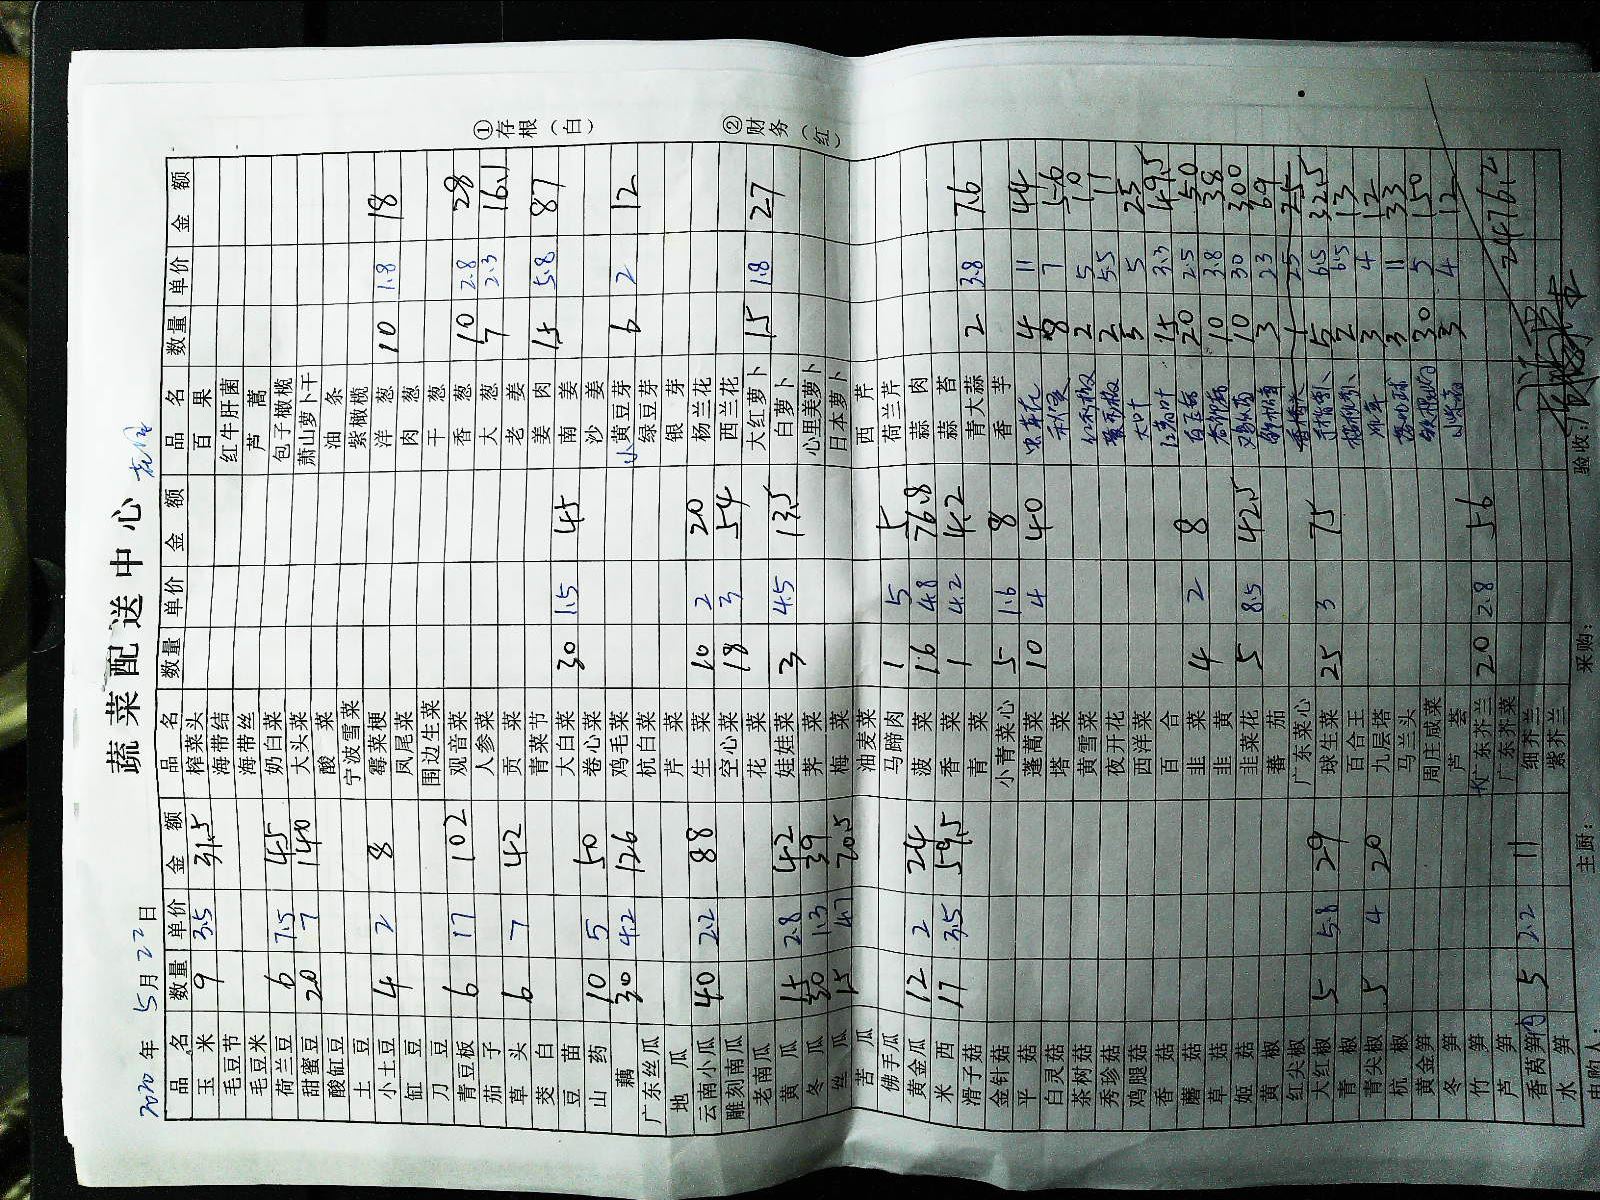 蔬菜配送中心
2020年5月22日
品名 数量 单价 金额 品名 数量 单价 金额 品名 数量 单价 金额
玉米 9 3.5 31.5 榨菜头 百果
毛豆节 海带结 红牛肝菌
毛豆米 海带丝 芦蒿
荷兰豆 6 7.5 45 奶白菜 包子橄榄
甜蜜豆 20 7 140 大头菜 萧山萝卜干
酸缸豆 酸菜 油条
土豆 宁波雪菜 紫橄榄
小土豆 4 2 8 霉菜梗 洋葱 10 1.8 18
缸豆 凤尾菜 肉葱
刀豆 围边生菜 干葱
青豆板 6 17 102 观音菜 香葱 10 2.8 28
茄子 人参菜 大葱 7 2.3 16.1
草头 6 7 42 贡菜 老姜
茭白 青菜节 姜肉 15 5.8 87
豆苗 大白菜 30 1.5 45 南姜
山药 10 5 50 卷心菜 沙姜
藕 30 4.2 126 鸡毛菜 小黄豆芽 6 2 12
广东丝瓜 杭白菜 绿豆芽
地瓜 芹菜 银芽
云南小瓜 40 2.2 88 生菜 10 2 20 杨兰花
雕刻南瓜 空心菜 18 3 54 西兰花
老南瓜 花菜 大红萝卜 15 1.8 27
黄瓜 15 2.8 42 娃娃菜 3 4.5 13.5 白萝卜
冬瓜 30 1.3 39 荠菜 心里美萝卜
丝瓜 15 4.7 70.5 梅菜 日本萝卜
苦瓜 油麦菜 西芹
佛手瓜 马蹄肉 1 5 5 荷兰芹
黄金瓜 12 2 24 菠菜 16 4.8 76.8 蒜肉
米西 17 3.5 59.5 香菜 1 4.2 4.2 蒜苔
滑子菇 青菜 青大蒜 2 3.8 7.6
金针菇 小青菜心 5 1.6 8 香芋
平菇 蓬蒿菜 10 4 40 4 11 44
白灵菇 塔菜 8 7 56
茶树菇 黄雪菜 2 5 10
秀珍菇 夜开花 2 5.5 11
鸡腿菇 西洋菜 大叶 5 5 25
香菇 百合 15 3.3 49.5
蘑菇 韭菜 4 2 8 20 2.5 50
草菇 韭黄 10 3.8 38
姬菇 韭菜花 5 8.5 42.5 10 30 300
黄椒 蕃茄 3 23 69
红尖椒 广东菜心 1 25 25
大红椒 5 5.8 29 球生菜 25 3 75 5 6.5 32.5
青椒 百合王 2 6.5 13
青尖椒 5 4 20 九层塔 3 4 12
杭椒 马兰头 3 11 33
黄金笋 周庄咸菜 30 5 150
冬笋 芦荟 3 4 12
竹笋 广东芥兰 20 2.8 56
芦笋 广东芥菜 2476.2
香莴笋 5 2.2 11 细芥兰
水笋 紫芥兰
申购人： 主厨： 采购： 验收：
①存根（白）
②财务（红）